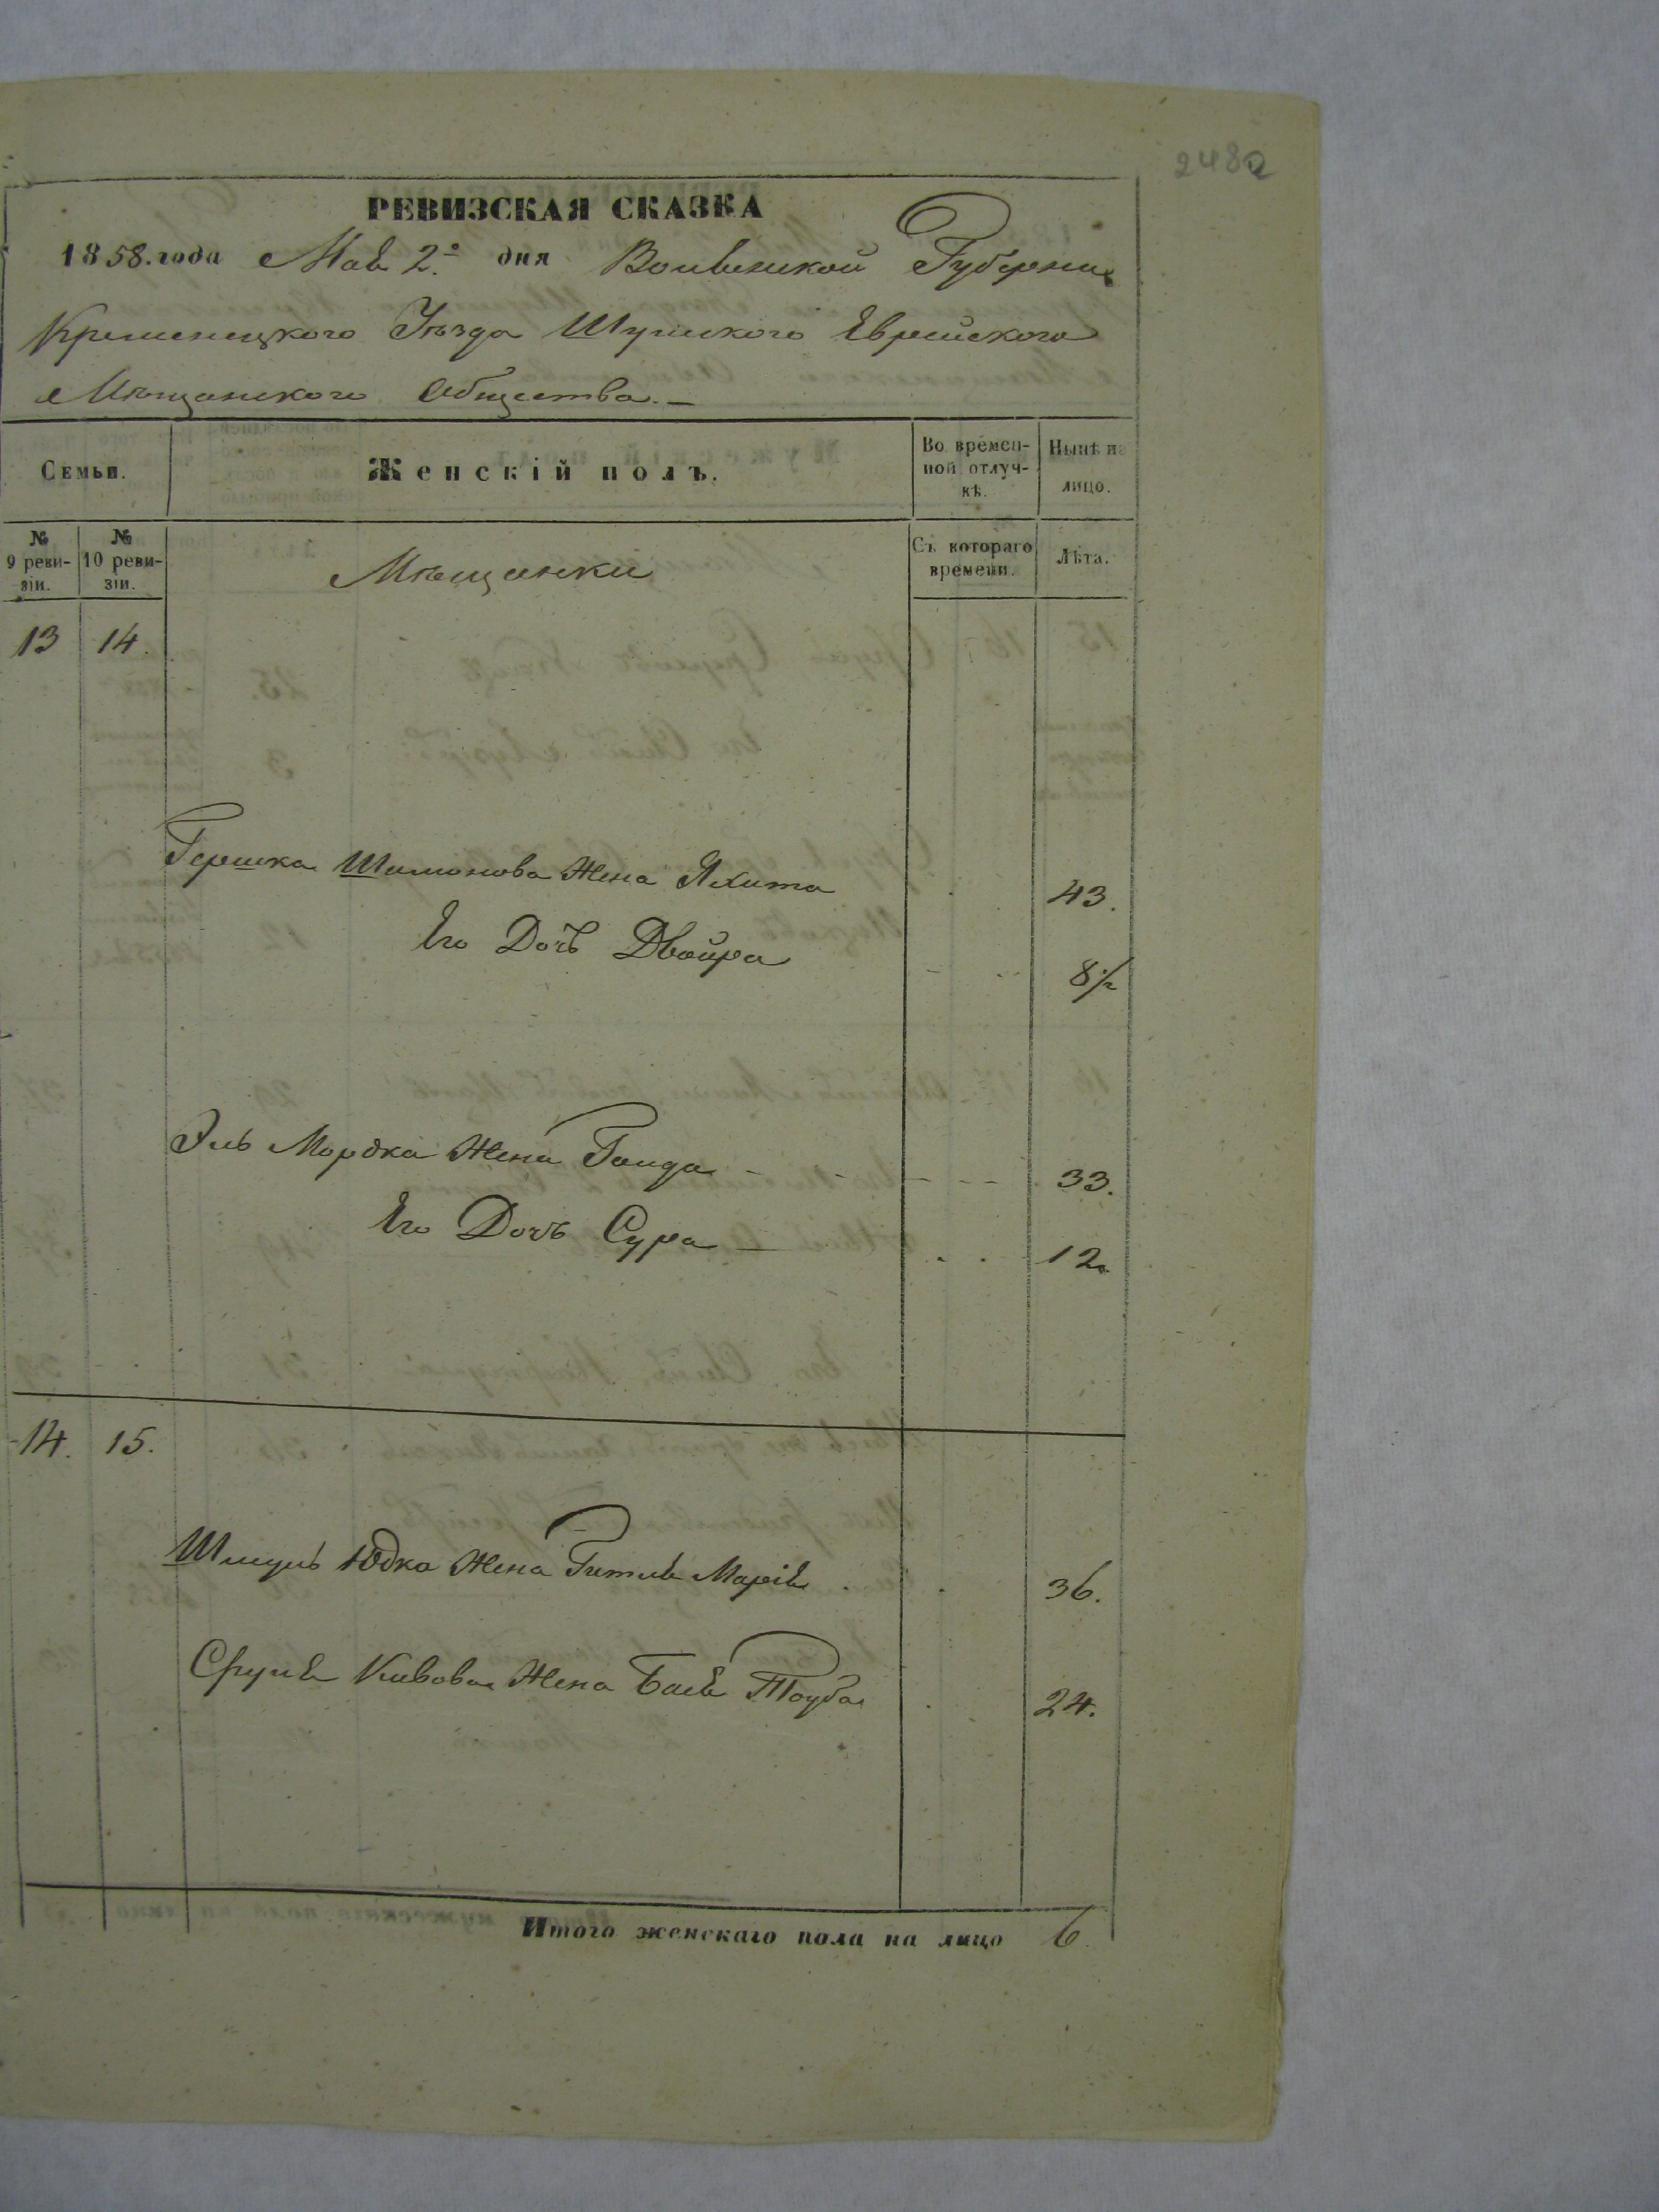 2482
РЕВИЗСКАЯ СКАЗКА
1858. года Мая 2.го дня Волынской Губерніи
Кременецкого Уѣзда Шумского Еврейского
Мѣщанского Общества.—
Семьи. Женскій полъ. Во времен-ной отлуч-кѣ. Нынѣ на лицо.
№ 9 реви-зіи. № 10 реви-зіи. Мѣщанки Съ котораго времени. Лѣта.
13 14.
Гершка Шимонова Жена Яхита 43.
Его Дочь Двойра 8 1/2
Эль Мордка Жена Голда 33.
Его Дочь Сура 12.
14. 15.
Шмуль Юдка Жена Гитля Марія 36.
Сруля Кивова Жена Бася Тоуба 24.
Итого женскаго пола на лицо 6.